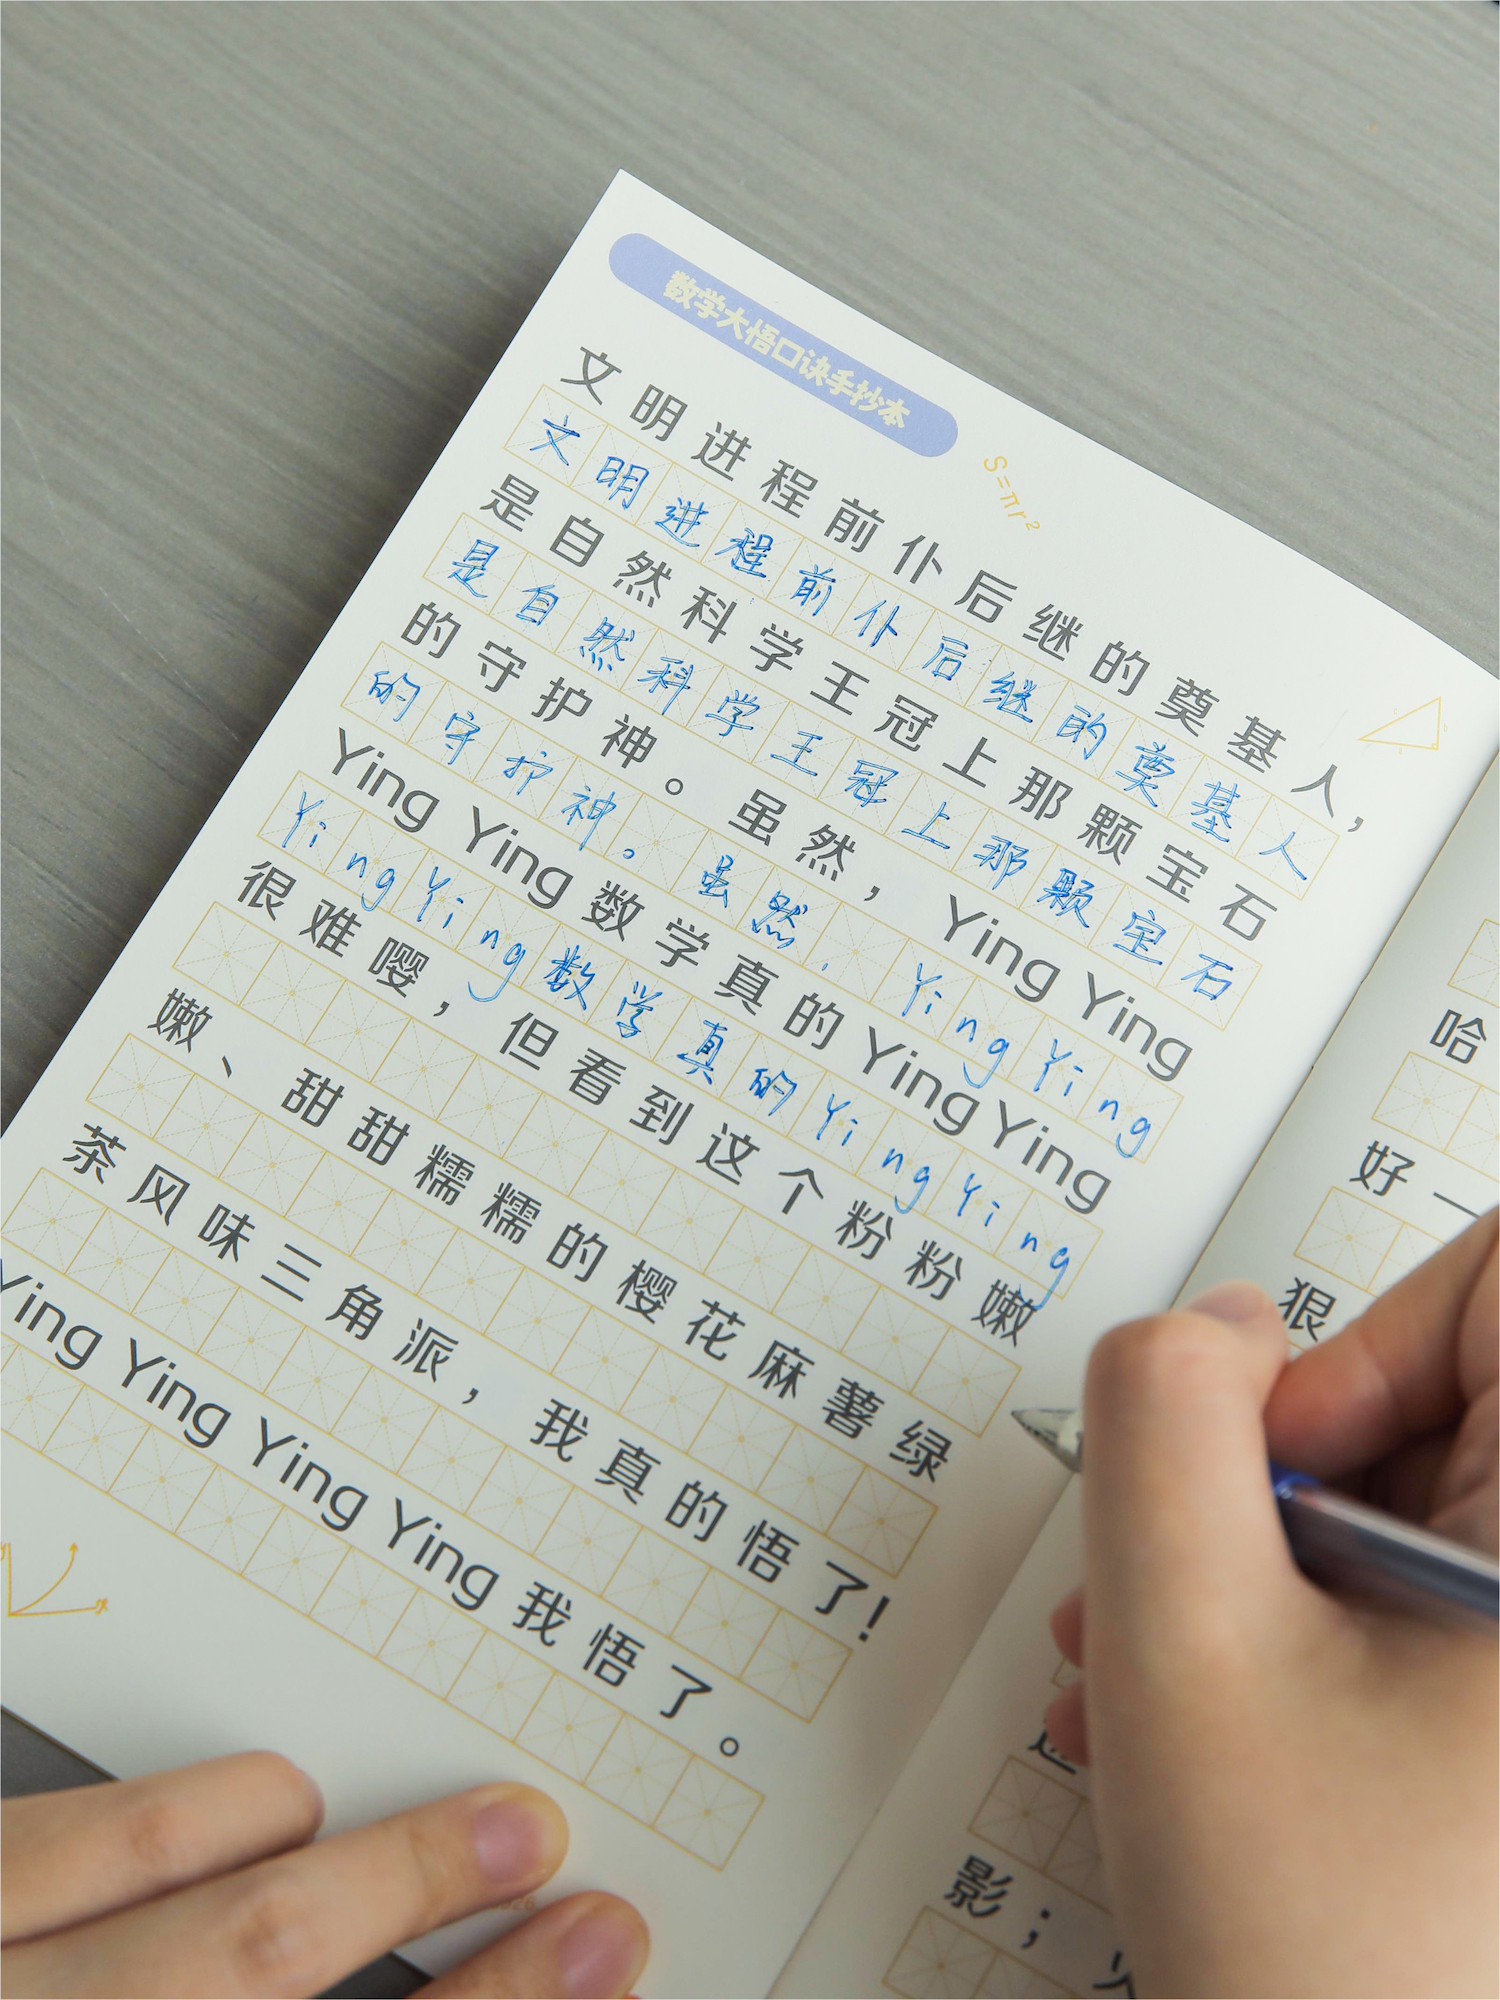 数学大悟口诀手抄本
S=πr²
文明进程前仆后继的奠基人，
文明进程前仆后继的奠基人
是自然科学王冠上那颗宝石
是自然科学王冠上那颗宝石
的守护神。虽然，Ying Ying
的守护神。虽然，Ying Ying
Ying Ying 数学真的 Ying Ying
Ying Ying 数学真的 Ying Ying
很难嘤，但看到这个粉粉嫩
嫩、甜甜糯糯的樱花麻薯绿
茶风味三角派，我真的悟了！
Ying Ying Ying Ying 我悟了。
哈
好一
狠
影；